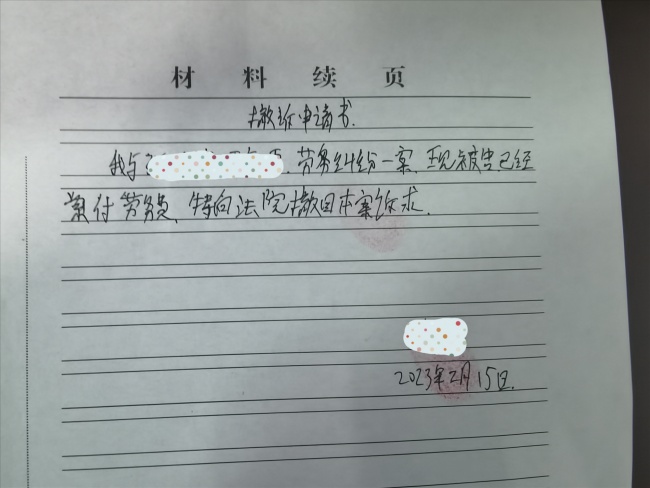 材料续页
撤诉申请书.
我与 劳务纠纷一案,现被告已经
支付劳务费,特向法院撤回本案诉求.
2023年2月15日.